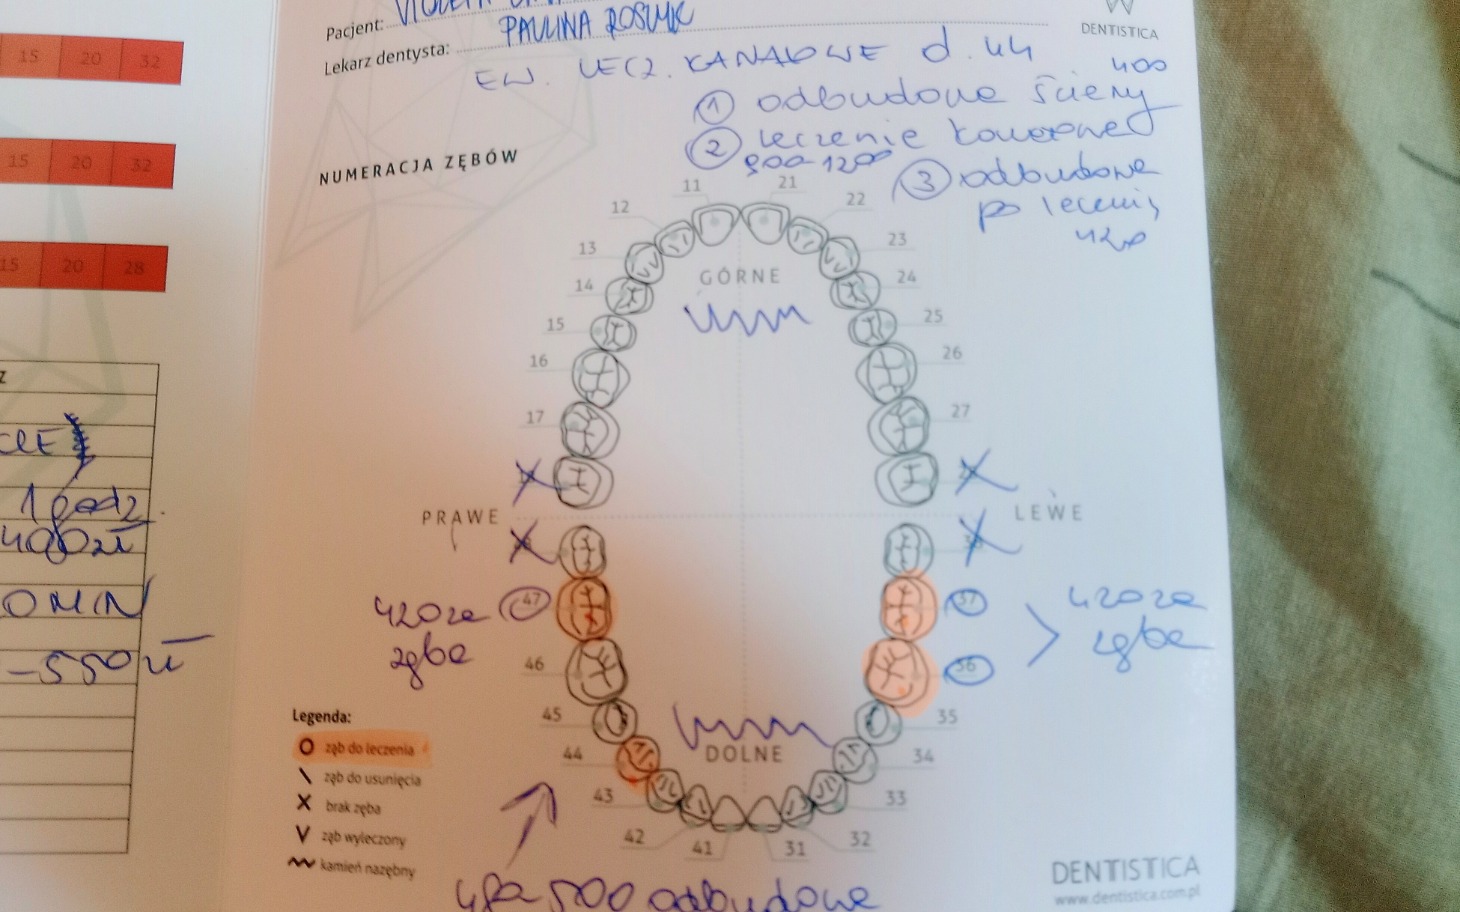 Pacjent:
Lekarz dentysta: PAULINA
DENTISTICA
EW. LECZ. KANAŁOWE d. 44
① odbudowa ściany 400
② leczenie kanałowe
900-1200
③ odbudowa
po leczeniu
420
NUMERACJA ZĘBÓW
15 20 32
15 20 32
15 20 28
11 21
12 22
13 23
14 24
15 25
16 26
17 27
GÓRNE
PRAWE LEWE
47 37
46 36
45 35
44 34
43 33
42 32
41 31
DOLNE
420 za
zęba
420 za
zęba
Z
1 godz.
400 zł
0 MIN
-550 zł
Legenda:
O ząb do leczenia
\ ząb do usunięcia
X brak zęba
V ząb wyleczony
kamień nazębny
500 odbudowa
DENTISTICA
www.dentistica.com.pl